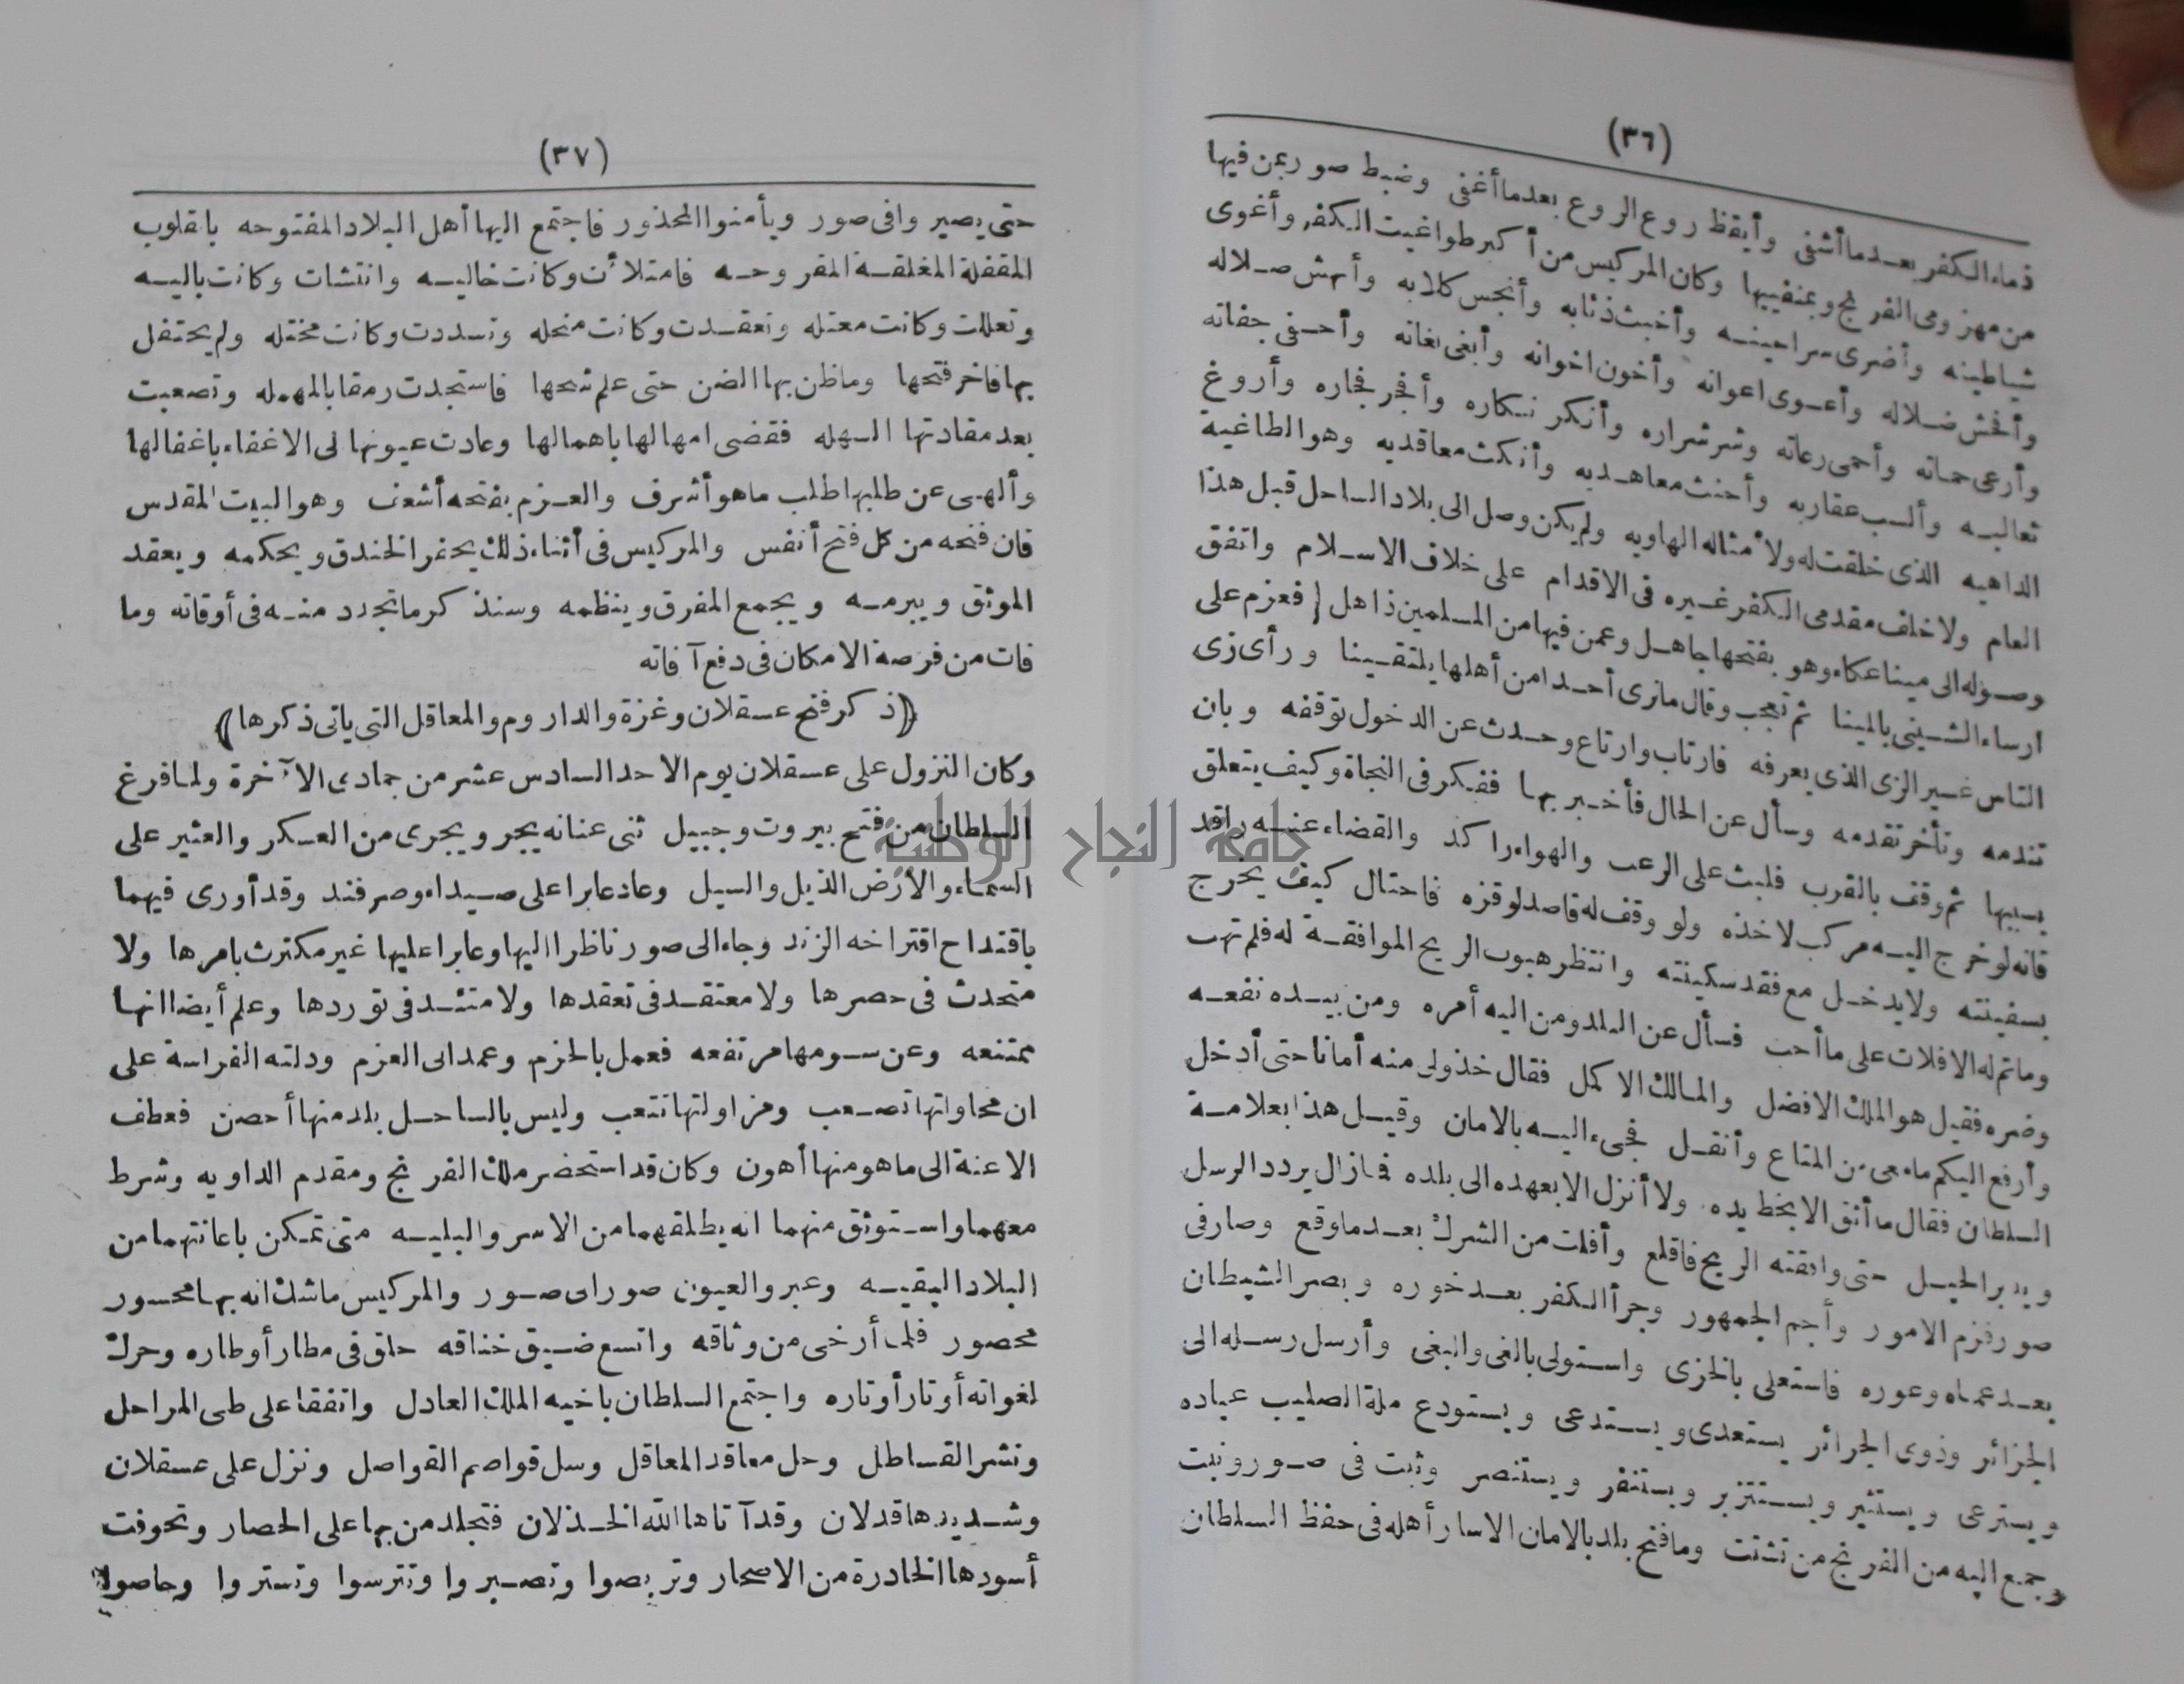 (٣٦)
ذماء الكفر بعد ما أشفى وأيقظ روع الروع بعد ما أغفى وضبط صور بمن فيها
من مهزومى الفرنج وبمنفييها وكان المركيس من أكبر طواغيت الكفر وأغوى
شياطينه وأضرى سراحينه وأخبث ذئابه وأنجس كلابه وأنهش صلاله
وأفحش ضلاله وأعوى اعوانه وأخون اخوانه وأبغى بغاته وأحفى حفاته
وأرعى حماته وأحمى رعاته وشر شراره وأنكر نكاره وأفجر فجاره وأروغ
ثعالبه وألسب عقاربه وأحنث معاهديه وأنكث معاقديه وهو الطاغية
الداهيه الذى خلقت له ولأمثاله الهاويه ولم يكن وصل الى بلاد الساحل قبل هذا
العام ولا خلف مقدمى الكفر غيره فى الاقدام على خلاف الاسلام واتفق
وصوله الى ميناعكاء وهو بفتحها جاهل وعمن فيها من المسلمين ذاهل فعزم على
ارساء الشينى بالمينا ثم تعجب وقال مانرى أحدا من أهلها يلتقينا ورأى زى
الناس غير الزى الذى يعرفه فارتاب وارتاع وحدث عن الدخول توقفه وبان
تندمه وتأخر تقدمه وسأل عن الحال فأخبر بها ففكر فى النجاة وكيف يتعلق
بسببها ثم وقف بالقرب فلبث على الرعب والهواء راكد والقضاء عنه راقد
فانه لو خرج اليه مركب لاخذه ولو وقف له قاصد لوقزه فاحتال كيف يخرج
بسفينته ولا يدخل مع فقد سكينته وانتظر هبوب الريح الموافقة له فلم تهب
وماتم له الافلات على ما أحب فسأل عن البلد ومن اليه أمره ومن بيده نفعه
وضره فقيل هو الملك الافضل والمالك الاكمل فقال خذولى منه أمانا حتى أدخل
وأرفع اليكم مامعى من المتاع وأنقل فجىء اليه بالامان وقيل هذا بعلامة
السلطان فقال ما أثق الا بخط يده ولا أنزل الا بعهده الى بلده فمازال يردد الرسل
ويدبر الحيل حتى وافقته الريح فاقلع وأفلت من الشرك بعد ما وقع وصار فى
صور فزم الامور وأجم الجمهور وجرأ الكفر بعد خوره وبصر الشيطان
بعد عماه وعوره فاستعلى بالخزى واستولى بالغى والبغى وأرسل رسله الى
الجزائر وذوى الجرائر يستعدى ويستدعى ويستودع ملة الصليب عباده
ويسترعى ويستثير ويستنزير ويستنفر ويستنصر وثبت فى صور ونبت
وجمع اليه من الفرنج من تشتت وما فتح بلد بالامان الا سار أهله فى حفظ السلطان
(٣٧)
حتى يصير وافى صور ويأمنوا المحذور فاجتمع اليها أهل البلاد المفتوحه باقلوب
المقفلة المغلقة المقروحه فامتلأت وكانت خاليه وانتشات وكانت باليه
وتعللت وكانت معتله وتعقدت وكانت منحله وتسددت وكانت مختله ولم يحتفل
بها فاخر فتحها وماظن بها الضن حتى علم شحها فاستجدت رمقا بالمهله وتصعبت
بعد مقادتها السهله فقضى امهالها باهمالها وعادت عيونها الى الاغفاء باغفالها
وألهى عن طلبها طلب ماهو أشرف والعزم بفتحه أشغف وهو البيت المقدس
فان فتحه من كل فتح أنفس والمركيس فى أثناء ذلك يحفر الخندق ويحكمه ويعقد
الموثق ويبرمه ويجمع المفرق وينظمه وسنذكر ماتجدد منه فى أوقاته وما
فات من فرصة الامكان فى دفع آفاته
﴿ذكر فتح عسقلان وغزة والداروم والمعاقل التى ياتى ذكرها﴾
وكان النزول على عسقلان يوم الاحد السادس عشر من جمادى الآخرة ولما فرغ
السلطان من فتح بيروت وجبيل ثنى عنانه يجر ويجرى من العسكر والعثير على
السماء والأرض الذيل والسيل وعاد عابرا على صيداء وصرفند وقد أورى فيهما
باقتداح اقتراحه الزند وجاء الى صور ناظرا اليها وعابرا عليها غير مكترث بامرها ولا
متحدث فى حصرها ولا معتقد فى تعقدها ولا متئد فى توردها وعلم أيضا انها
ممتنعه وعن سومها مرتفعه فعمل بالحزم وعمد الى العزم ودلته الفراسة على
ان محاولتها تصعب ومزاولتها تتعب وليس بالساحل بلد منها أحصن فعطف
الاعنة الى ماهو منها أهون وكان قد استحضر ملك الفرنج ومقدم الداويه وشرط
معهما واستوثق منهما انه يطلقهما من الاسر والبليه متى تمكن باعانتهما من
البلاد البقيه وعبر والعيون صور الى صور والمركيس ماشك انه بها محسور
محصور فلما أرخى من وثاقه واتسع ضيق خناقه حلق فى مطار أوطاره وحرك
لغواته أوتار أوتاره واجتمع السلطان باخيه الملك العادل واتفقا على طى المراحل
ونشر القساطل وحل معاقد المعاقل وسل قواصم القواصل ونزل على عسقلان
وشديدها قدلان وقد آتاها الله الخذلان فتجلد من بها على الحصار وتخوفت
أسودها الخادرة من الاصحار وتربصوا وتصبروا وتترسوا وتستروا وحاصوا
جامعة النجاح الوطنية